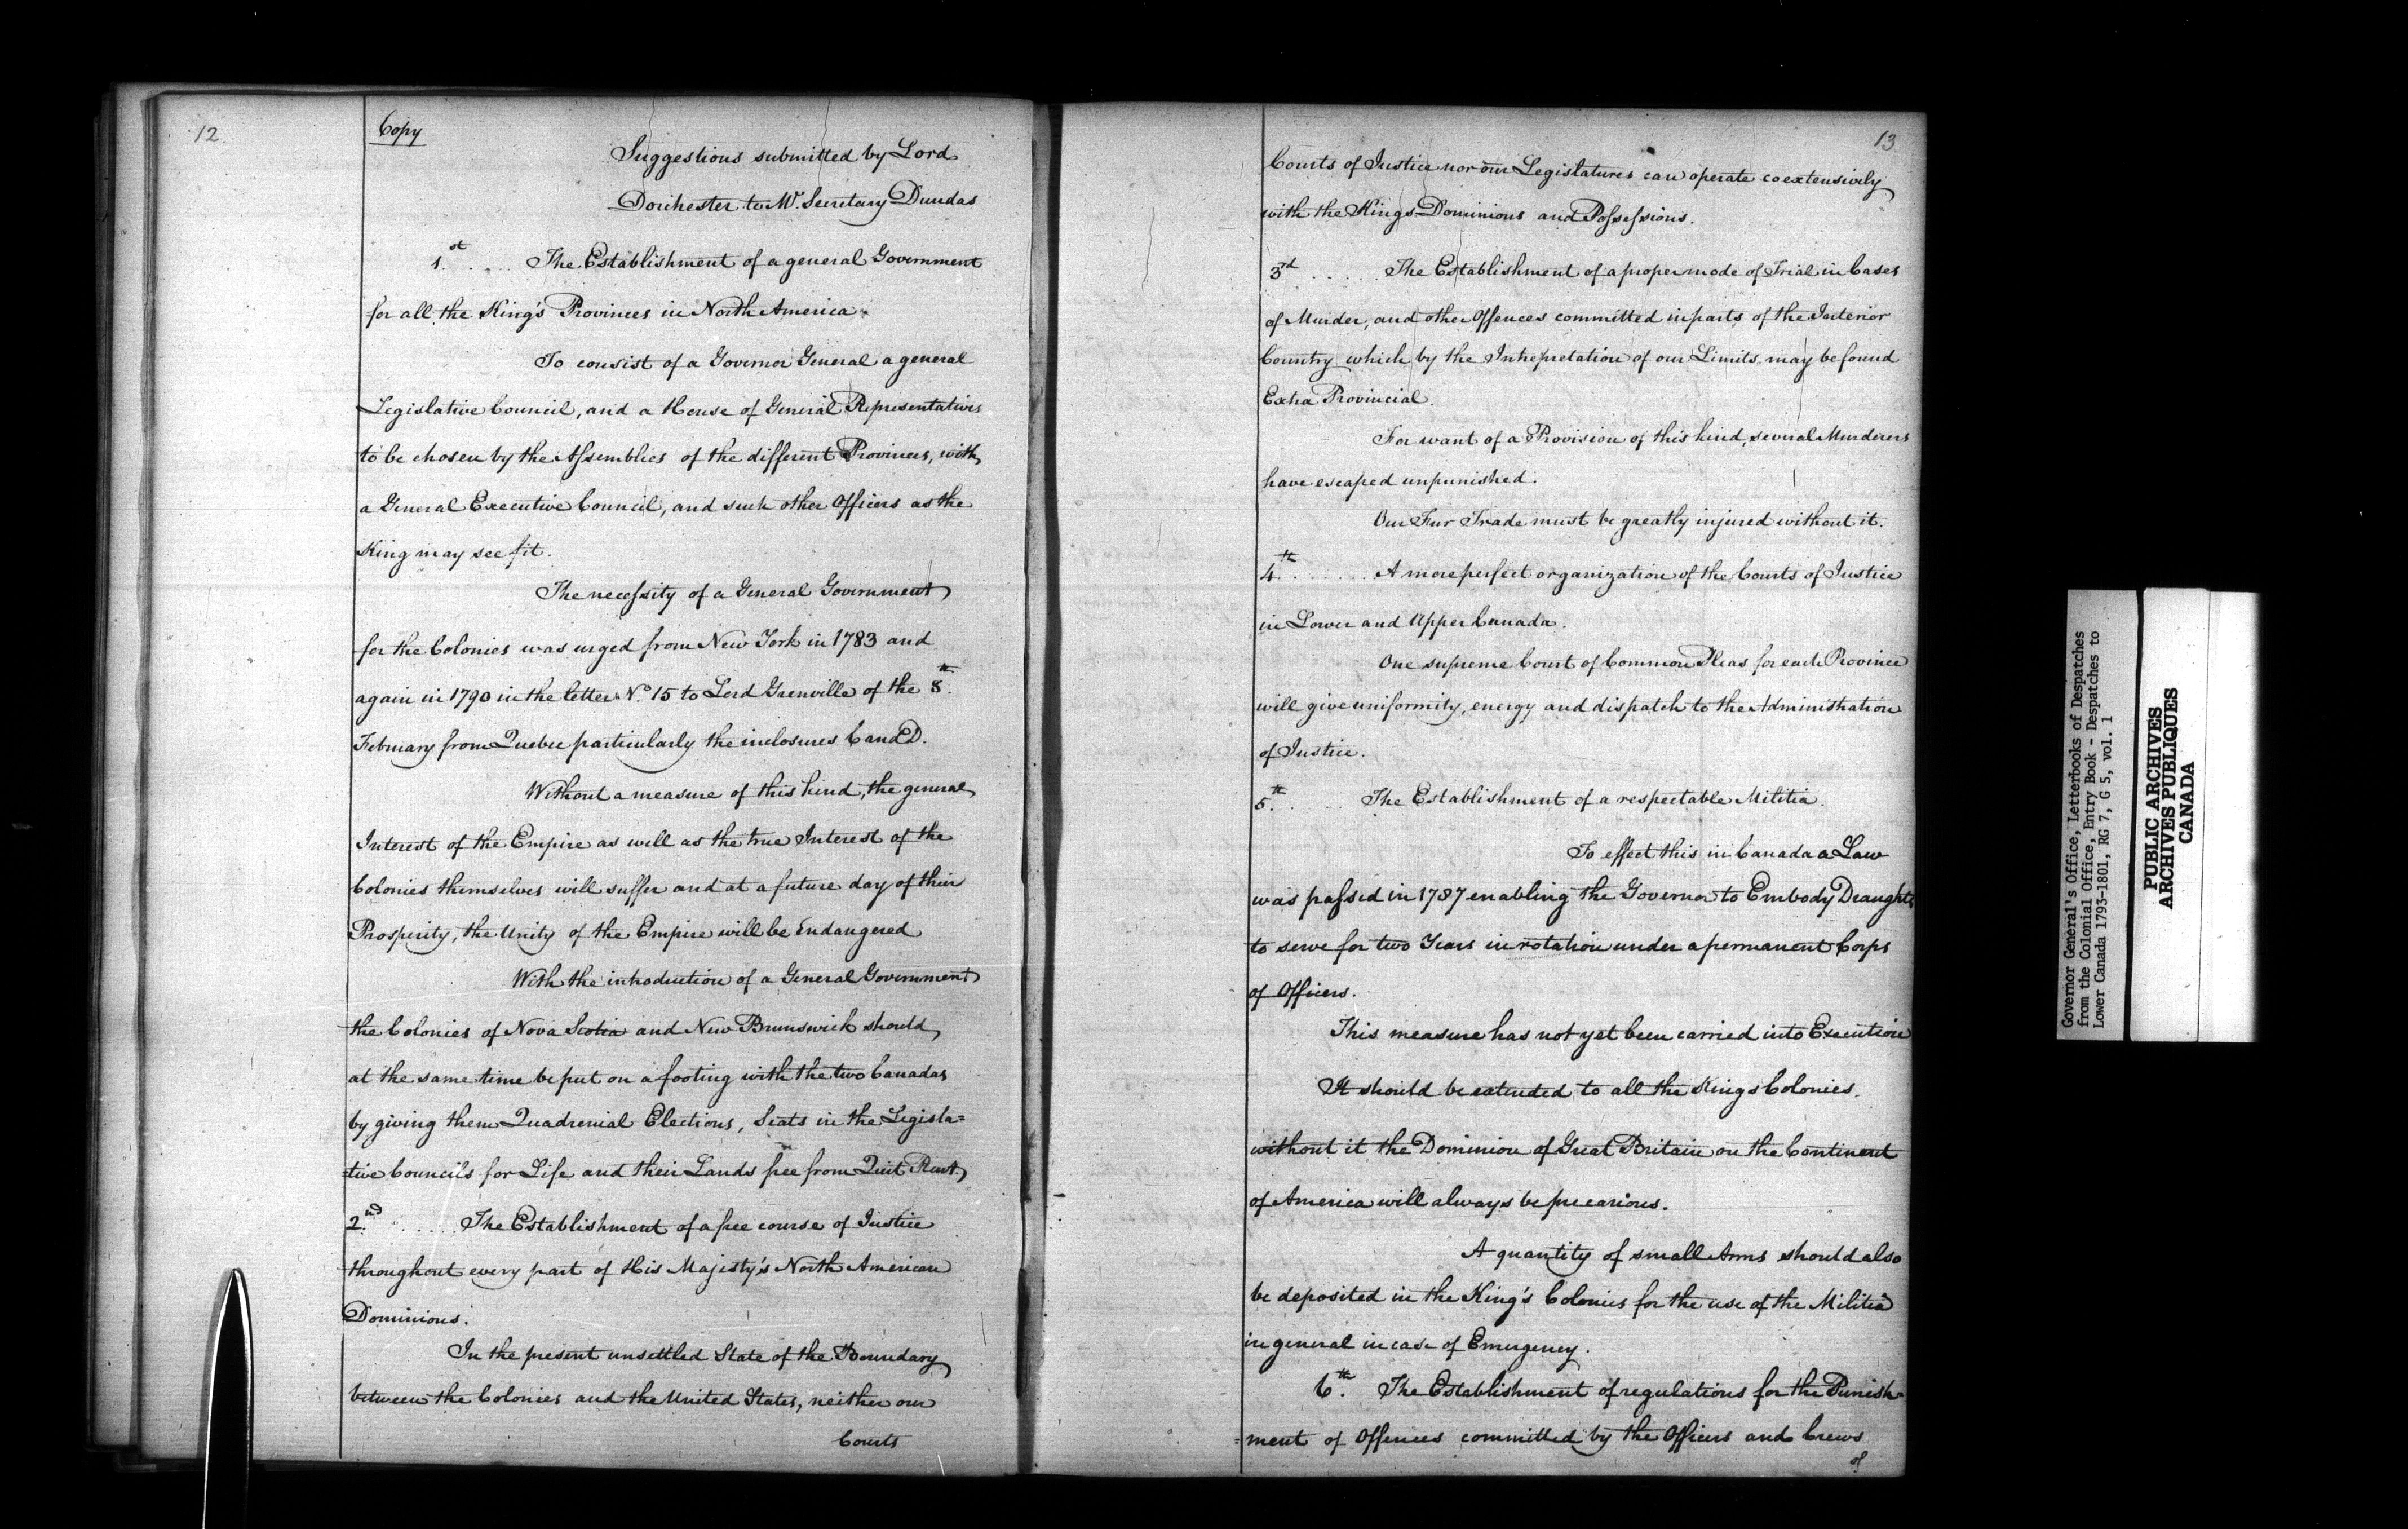 12.
Copy
Suggestions submitted by Lord
Dorchester to Mr. Secretary Dundas
1.st ..... The Establishment of a general Government
for all the King's Provinces in North America.
To consist of a Governor General a general
Legislative Council, and a House of General Representatives
to be chosen by the Assemblies of the different Provinces, with
a General Executive Council, and such other Officers as the
King may see fit.
The necessity of a General Government
for the Colonies was urged from New York in 1783 and
again in 1790 in the letter No. 15 to Lord Grenville of the 8.th
February from Quebec particularly the inclosures C and D.
Without a measure of this kind, the general
Interest of the Empire as well as the true Interest of the
Colonies themselves will suffer and at a future day of their
Prosperity, the Unity of the Empire will be Endangered
With the introduction of a General Government
the Colonies of Nova Scotia and New Brunswick should,
at the same time be put on a footing with the two Canadas
by giving them Quadrenial Elections, Seats in the Legisla=
=tive Councils for Life and their Lands free from Quit Rent.
2.nd ..... The Establishment of a free course of Justice
throughout every part of His Majesty's North American
Dominions.
In the present unsettled State of the Boundary
between the Colonies and the United States, neither our
Courts
13.
Courts of Justice nor our Legislatures can operate coextensively
with the Kings Dominions and Possessions.
3rd ..... The Establishment of a proper mode of Trial in Cases
of Murder, and other Offences committed in parts of the Interior
Country which by the Intrepretation of our Limits may be found
Extra Provincial.
For want of a Provision of this kind, several Murderers
have escaped unpunished.
Our Fur Trade must be greatly injured without it.
4.th ...... A more perfect organization of the Courts of Justice
in Lower and Upper Canada.
One supreme Court of Common Pleas for each Province
will give uniformity, energy and dispatch to the Administration
of Justice.
5.th .... The Establishment of a respectable Militia.
To effect this in Canada a Law
was passed in 1787 enabling the Governor to Embody Draughts
to serve for two Years in rotation under a permanent Corps
of Officers.
This measure has not yet been carried into Execution
It should be extended to all the Kings Colonies.
without it the Dominion of Great Britain on the Continent
of America will always be precarious.
A quantity of small Arms should also
be deposited in the King's Colonies for the use of the Militia
in general in case of Emergency.
6th. The Establishment of regulations for the Punish=
=ment of Offences committed by the Officers and Crews
of
Governor General's Office, Letterbooks of Despatches
from the Colonial Office, Entry Book - Despatches to
Lower Canada 1793-1801, RG 7, G 5, vol. 1
PUBLIC ARCHIVES
ARCHIVES PUBLIQUES
CANADA